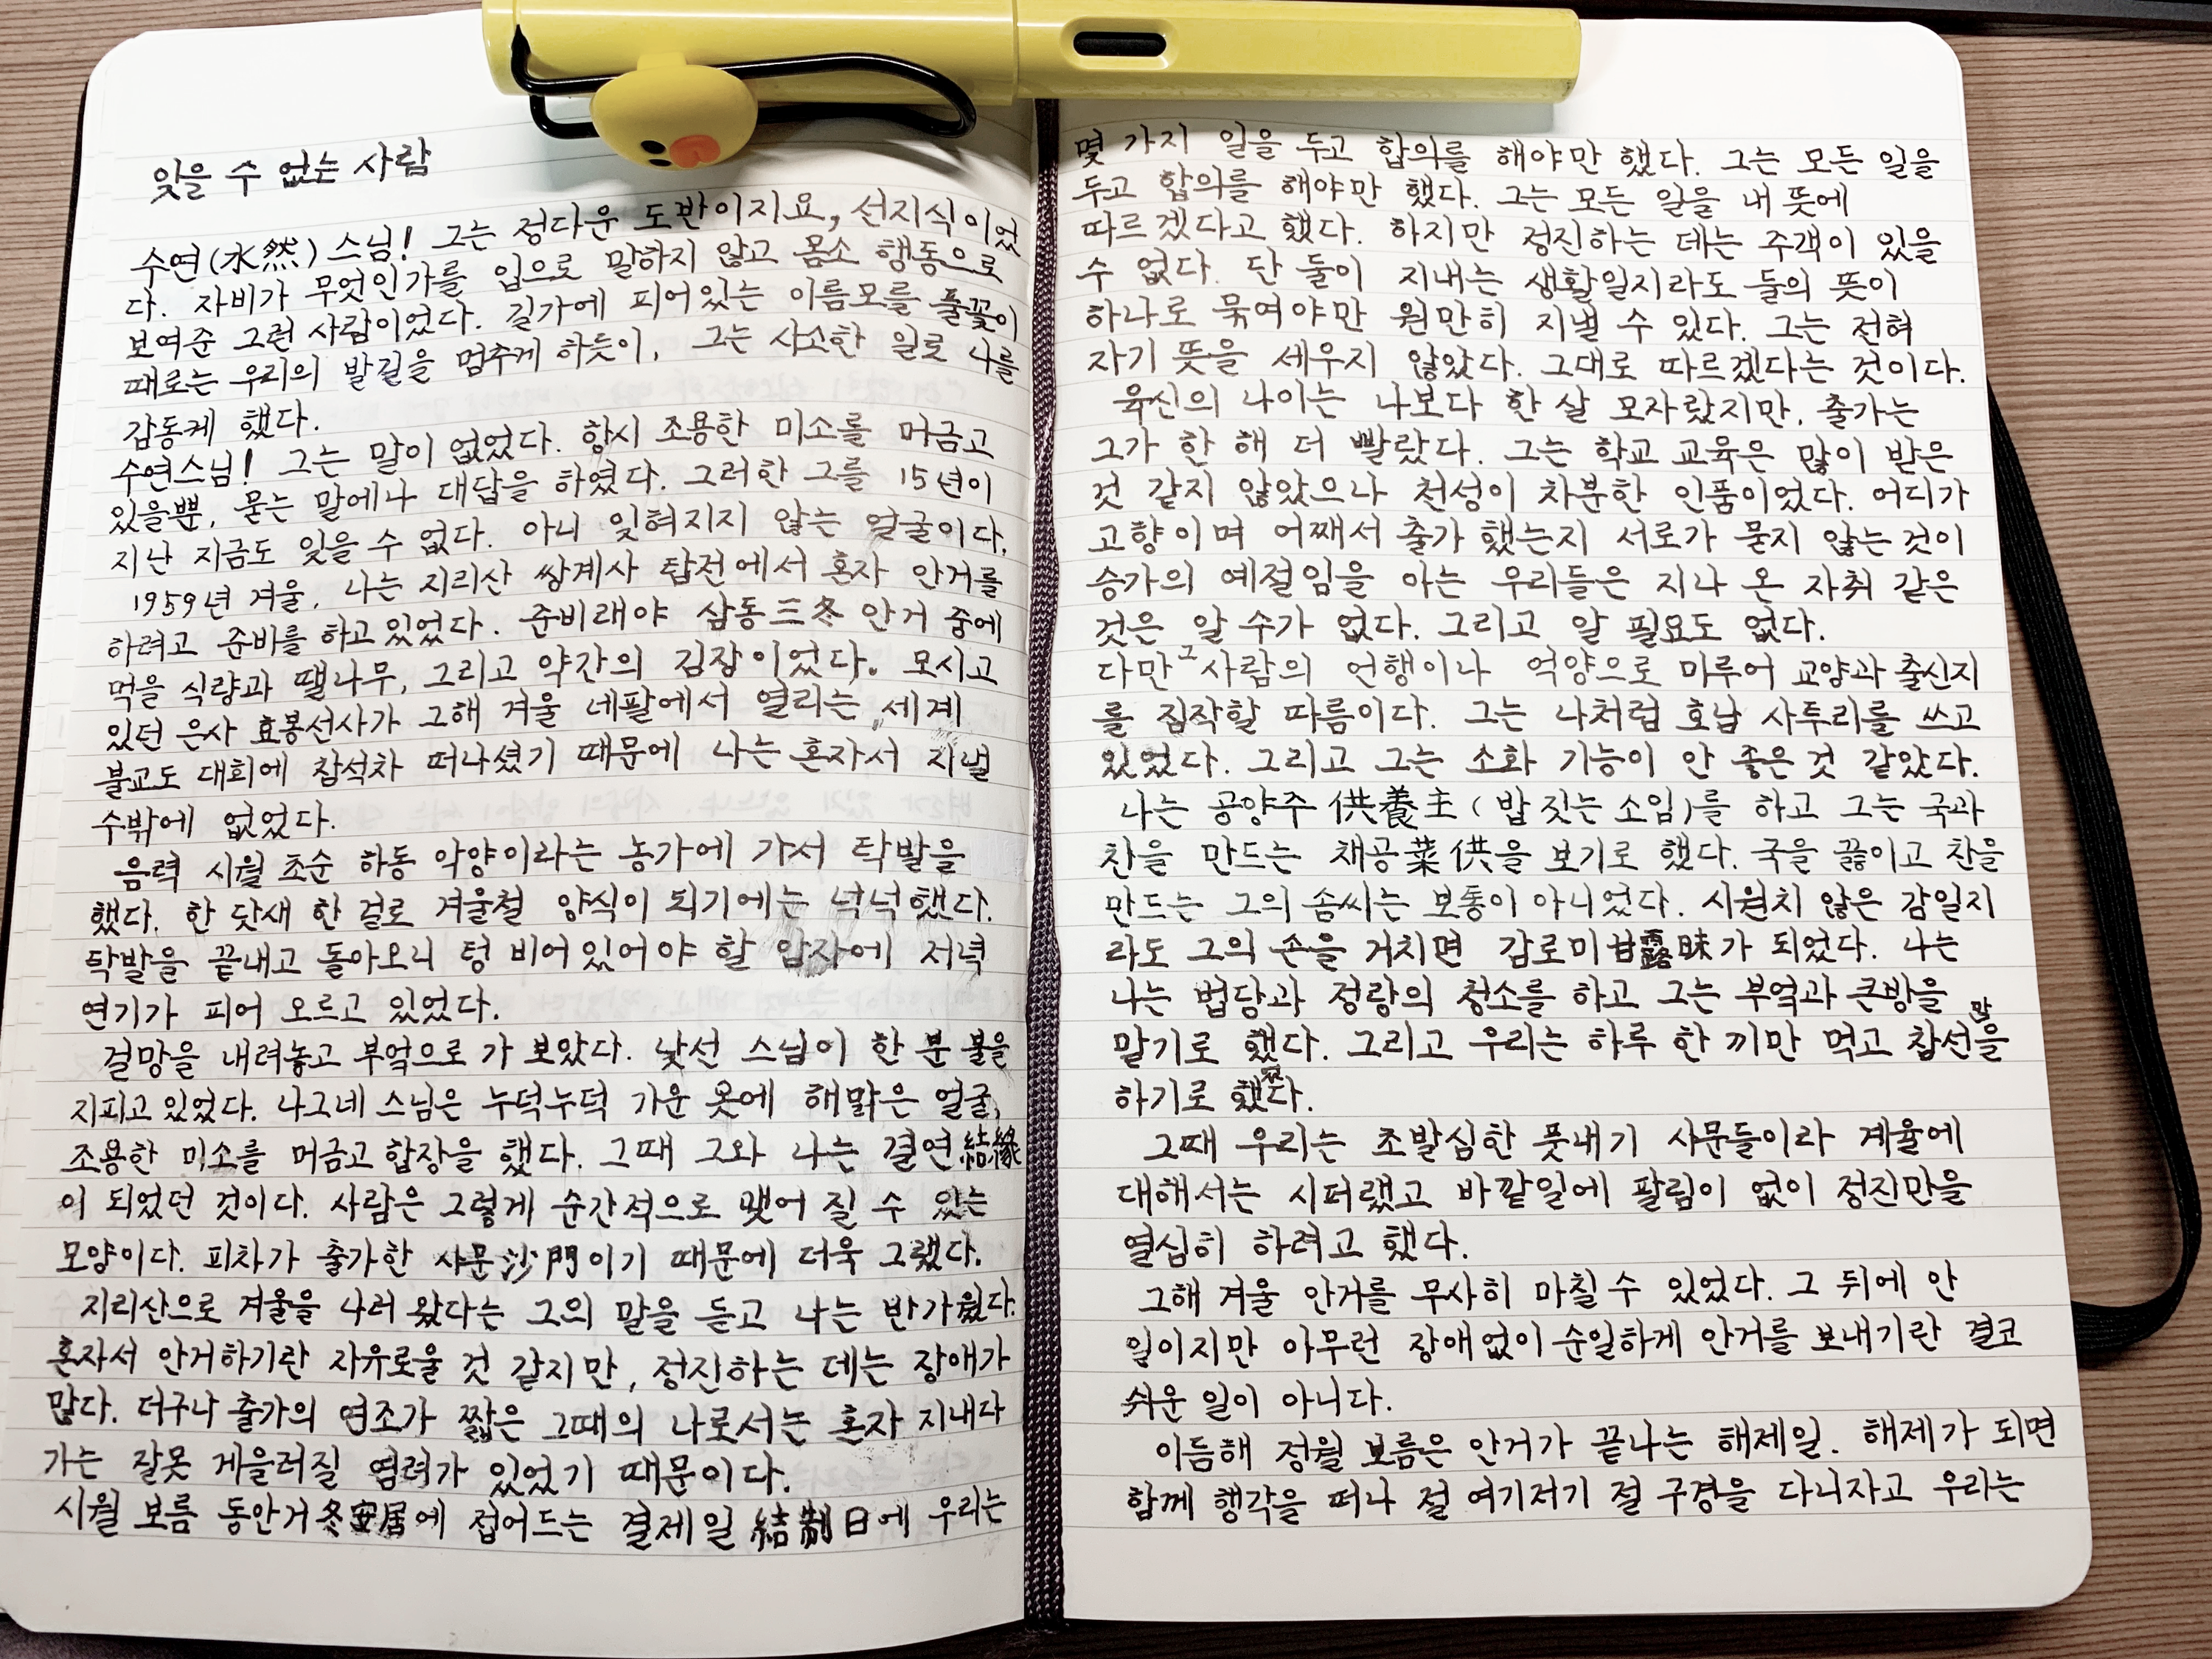 잊을 수 없는 사람
수연(水然) 스님! 그는 정다운 도반이지요, 선지식이었
다. 자비가 무엇인가를 입으로 말하지 않고 몸소 행동으로
보여준 그런 사람이었다. 길가에 피어있는 이름모를 풀꽃이
때로는 우리의 발길을 멈추게 하듯이, 그는 사소한 일로 나를
감동케 했다.
수연스님! 그는 말이 없었다. 항시 조용한 미소를 머금고
있을뿐, 묻는 말에나 대답을 하였다. 그러한 그를 15년이
지난 지금도 잊을 수 없다. 아니 잊혀지지 않는 얼굴이다.
1959년 겨울, 나는 지리산 쌍계사 탑전에서 혼자 안거를
하려고 준비를 하고 있었다. 준비래야 삼동三冬 안거 중에
먹을 식량과 땔나무, 그리고 약간의 김장이었다. 모시고
있던 은사 효봉선사가 그해 겨울 네팔에서 열리는 세계
불교도 대회에 참석차 떠나셨기 때문에 나는 혼자서 지낼
수밖에 없었다.
음력 시월 초순 하동 악양이라는 농가에 가서 탁발을
했다. 한 닷새 한 걸로 겨울철 양식이 되기에는 넉넉했다.
탁발을 끝내고 돌아오니 텅 비어있어야 할 암자에 저녁
연기가 피어 오르고 있었다.
걸망을 내려놓고 부엌으로 가 보았다. 낯선 스님이 한 분 불을
지피고 있었다. 나그네 스님은 누덕누덕 기운 옷에 해맑은 얼굴,
조용한 미소를 머금고 합장을 했다. 그때 그와 나는 결연結緣
이 되었던 것이다. 사람은 그렇게 순간적으로 맺어 질 수 있는
모양이다. 피차가 출가한 사문沙門이기 때문에 더욱 그랬다.
지리산으로 겨울을 나러 왔다는 그의 말을 듣고 나는 반가웠다.
혼자서 안거하기란 자유로울 것 같지만, 정진하는 데는 장애가
많다. 더구나 출가의 연조가 짧은 그때의 나로서는 혼자 지내다
가는 잘못 게을러질 염려가 있었기 때문이다.
시월 보름 동안거冬安居에 접어드는 결제일 結制日에 우리는
몇 가지 일을 두고 합의를 해야만 했다. 그는 모든 일을
두고 합의를 해야만 했다. 그는 모든 일을 내 뜻에
따르겠다고 했다. 하지만 정진하는 데는 주객이 있을
수 없다. 단 둘이 지내는 생활일지라도 둘의 뜻이
하나로 묶여야만 원만히 지낼 수 있다. 그는 전혀
자기 뜻을 세우지 않았다. 그대로 따르겠다는 것이다.
육신의 나이는 나보다 한 살 모자랐지만, 출가는
그가 한 해 더 빨랐다. 그는 학교 교육은 많이 받은
것 같지 않았으나 천성이 차분한 인품이었다. 어디가
고향이며 어째서 출가 했는지 서로가 묻지 않는 것이
승가의 예절임을 아는 우리들은 지나 온 자취 같은
것은 알 수가 없다. 그리고 알 필요도 없다.
다만 그 사람의 언행이나 억양으로 미루어 교양과 출신지
를 짐작할 따름이다. 그는 나처럼 호남 사투리를 쓰고
있었다. 그리고 그는 소화 기능이 안 좋은 것 같았다.
나는 공양주 供養主 (밥 짓는 소임)를 하고 그는 국과
찬을 만드는 채공菜供을 보기로 했다. 국을 끓이고 찬을
만드는 그의 솜씨는 보통이 아니었다. 시원치 않은 감일지
라도 그의 손을 거치면 감로미甘露味가 되었다. 나는
나는 법당과 정랑의 청소를 하고 그는 부엌과 큰방을 맡
말기로 했다. 그리고 우리는 하루 한 끼만 먹고 참선을
하기로 했다.
그때 우리는 초발심한 풋내기 사문들이라 계율에
대해서는 시퍼랬고 바깥일에 팔림이 없이 정진만을
열심히 하려고 했다.
그해 겨울 안거를 무사히 마칠 수 있었다. 그 뒤에 안
일이지만 아무런 장애없이 순일하게 안거를 보내기란 결코
쉬운 일이 아니다.
이듬해 정월 보름은 안거가 끝나는 해제일. 해제가 되면
함께 행각을 떠나 절 여기저기 절 구경을 다니자고 우리는